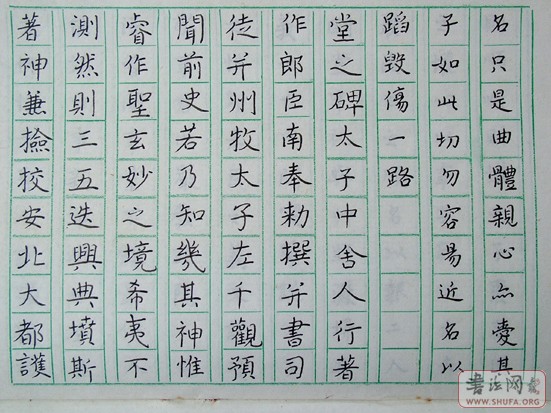 名只是曲體親心亦愛其
子如此切勿容易近名以
蹈毀傷一路
堂之碑太子中舍人行著
作郎臣南奉勅撰并書司
徒并州牧太子左千觀預
聞前史若乃知幾其神惟
睿作聖玄妙之境希夷不
測然則三五迭興典墳斯
著神兼撿校安北大都護
WWW.SHUFA.ORG